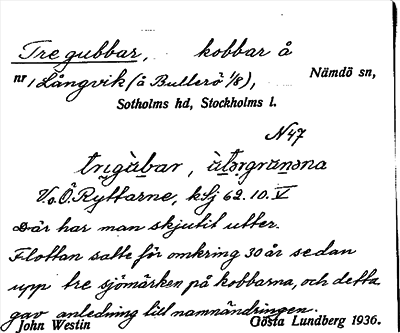 Tre gubbar, kobbar å
nr 1 Långvik (å Bullerö 1/8), Nämdö sn,
Sotholms hd, Stockholms l.
N 47
trigùbar, àtərgrɑnəna
V. o Ö. Ryttarne, kSj 62. 10. V
Där har man skjutit utter.
Flottan satte för omkring 30 år sedan
upp tre sjömärken på kobbarna, och detta
gav anledning till namnändringen.
John Westin Gösta Lundberg 1936.